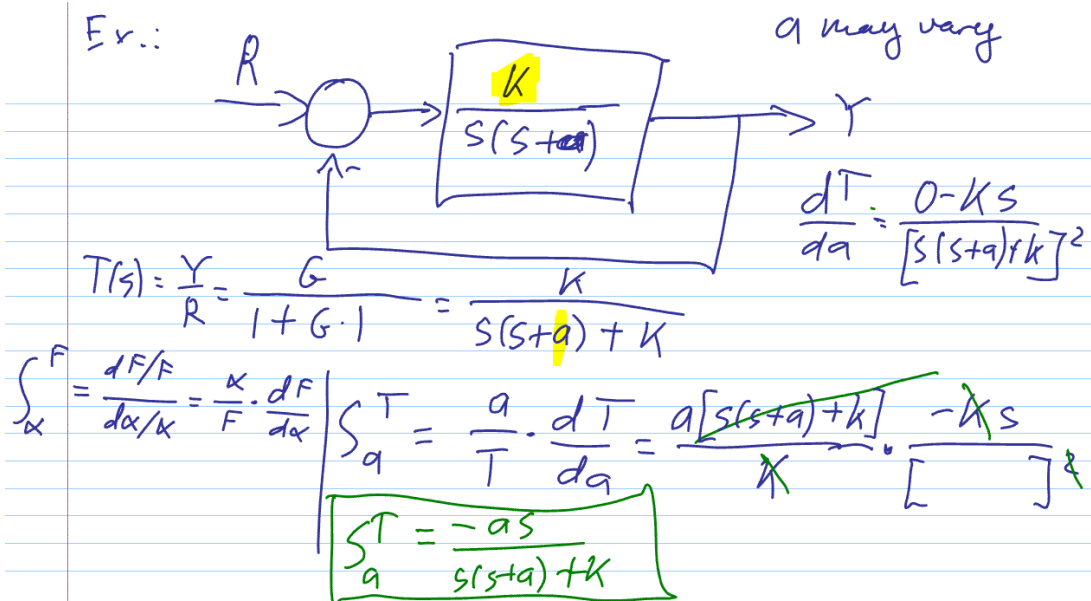 Ex.:
a may vary
R
K
s(s+a)
Y
-
dT/da = (0-Ks)/[s(s+a)+k]²
T(s) = Y/R = G/(1+G·1) = K/(s(s+a)+K)
S_α^F = (dF/F)/(dα/α) = α/F · dF/dα
S_a^T = a/T · dT/da = a[s(s+a)+k]/K · -Ks/[ ]²
S_a^T = -as/(s(s+a)+K)